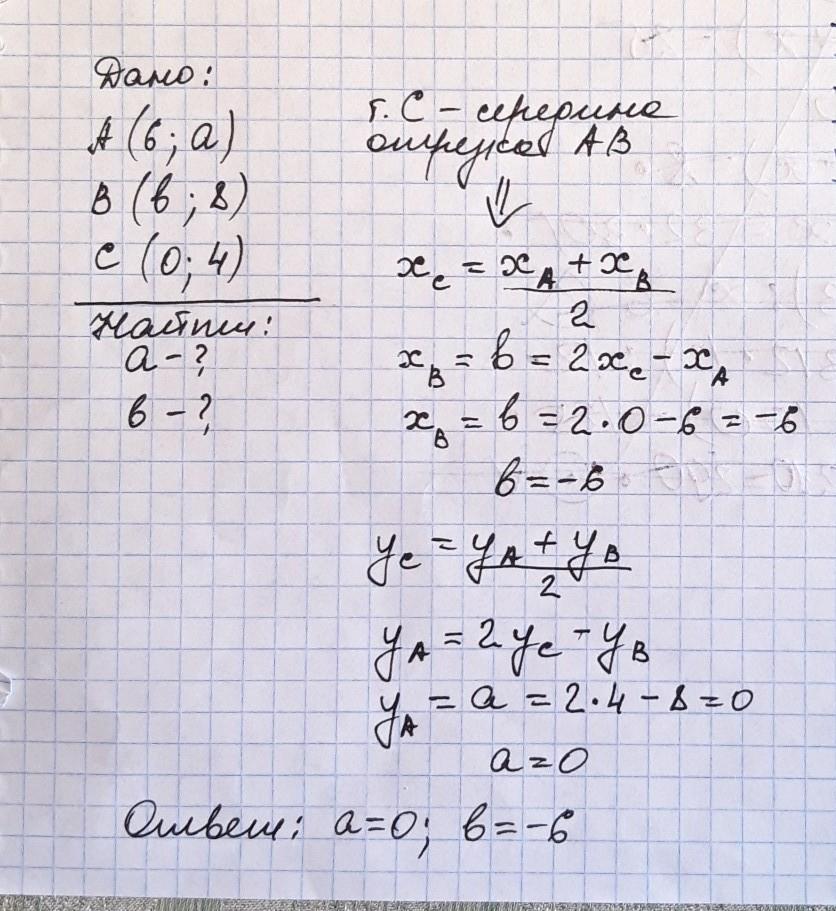 Дано:
А (6; а)
В (в; 8)
С (0; 4)
Найти:
а - ?
в - ?
т. С – середина
отрезка АВ
⇓
x_C = (x_A + x_B)/2
x_B = в = 2x_C - x_A
x_B = в = 2·0 - 6 = -6
в = -6
y_C = (y_A + y_B)/2
y_A = 2y_C - y_B
y_A = а = 2·4 - 8 = 0
а = 0
Ответ: а=0; в=-6